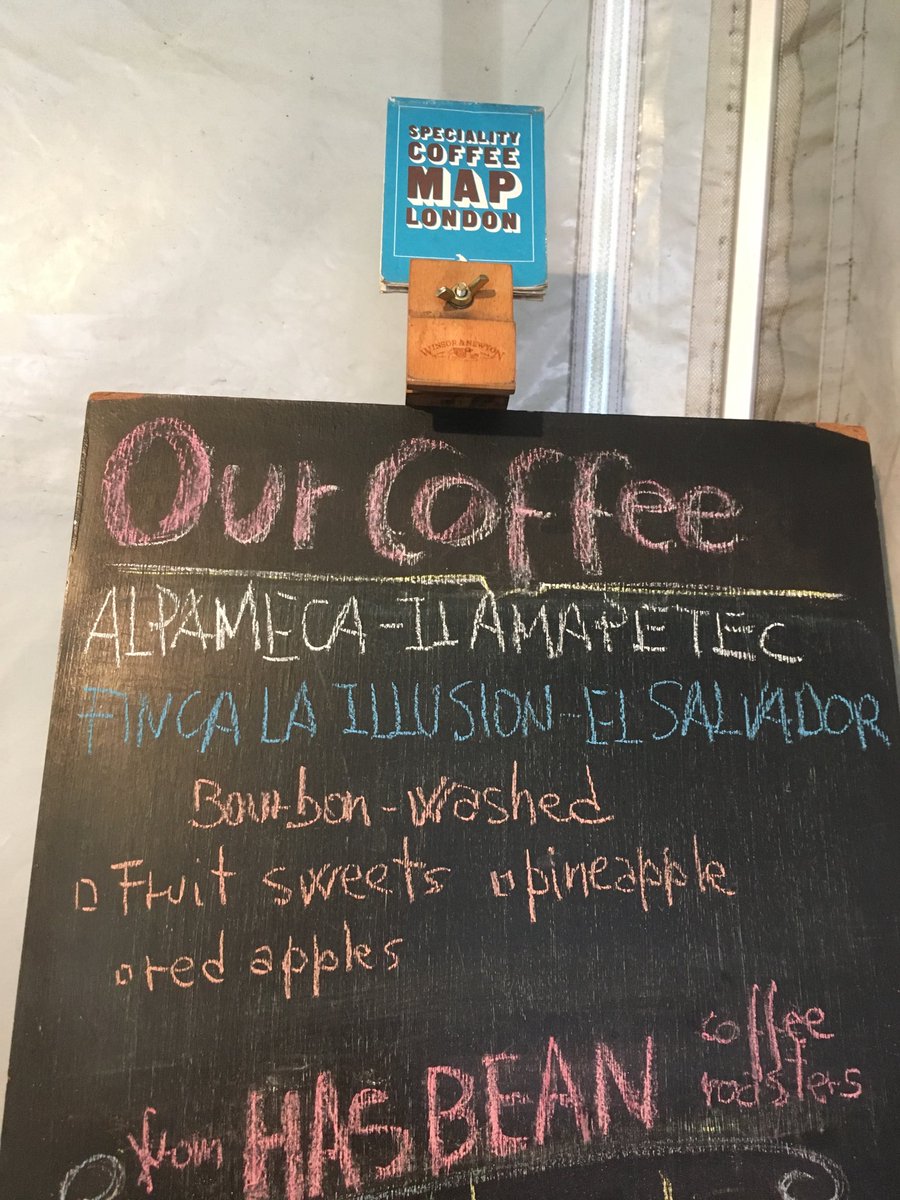 SPECIALITY
COFFEE
MAP
LONDON
WINSOR & NEWTON
Our Coffee
ALPAMECA - ILAMAPETEC
FINCA LA ILLUSION - EL SALVADOR
Bourbon - washed
Fruit sweets pineapple
red apples
from HAS BEAN coffee roasters